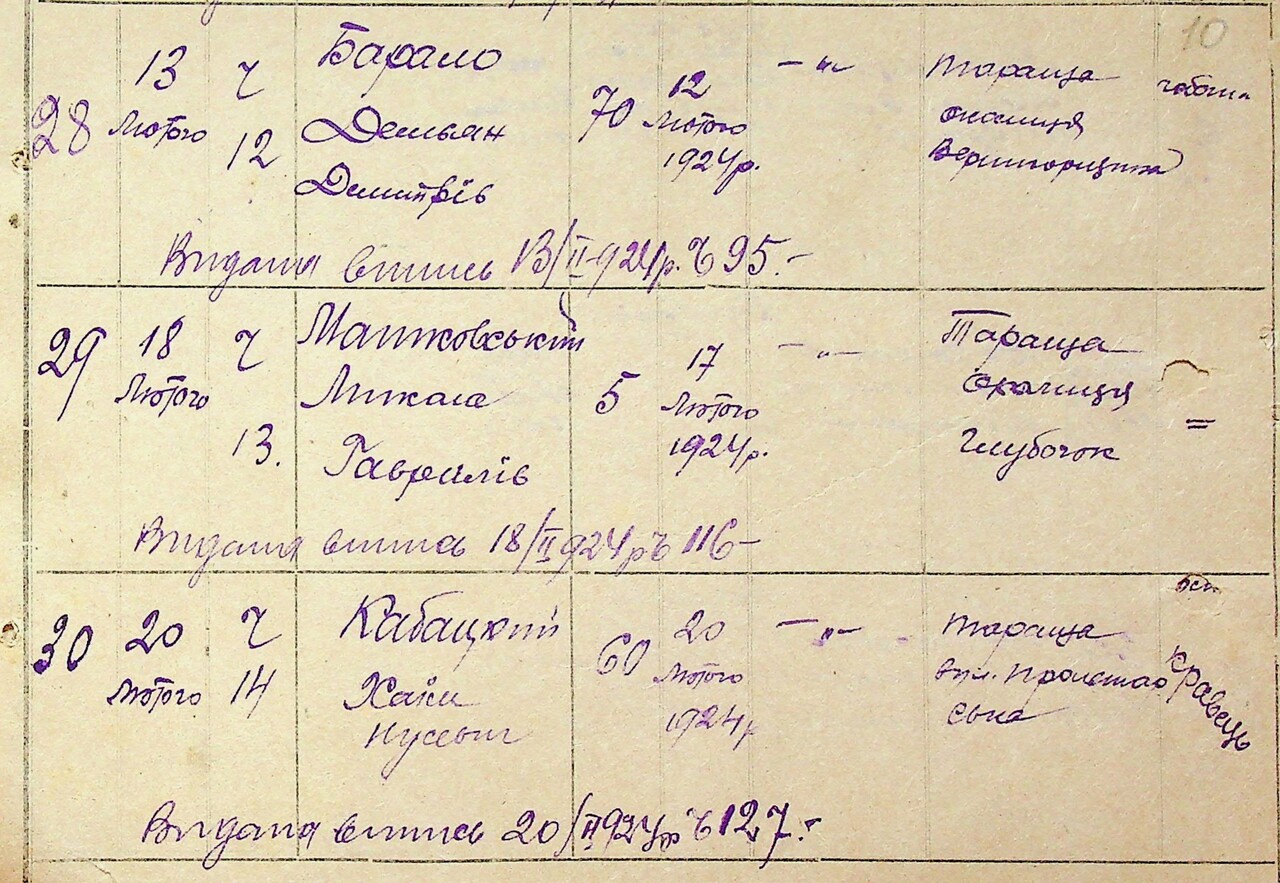 10
28
13 Лютого
ч 12
Барало
Демьян
Дмитрів
70
12 Лютого 1924 р.
— „ —
Тараща
околиця
Видана впись 13/II-924 р. № 95.-
29
18 Лютого
ч 13.
Машковський
Микола
Гаврилів
5
17 Лютого 1924 р.
— „ —
Тараща
околиця
Глубочок
=
Видана впись 18/II 924 р № 116-
30
20 Лютого
ч 14
Кабацький
Хаїм
Нусевич
60
20 Лютого 1924 р
— „ —
Тараща
вул. Пролетар
ська
кравець
Видана впись 20/II 924 р № 127.-